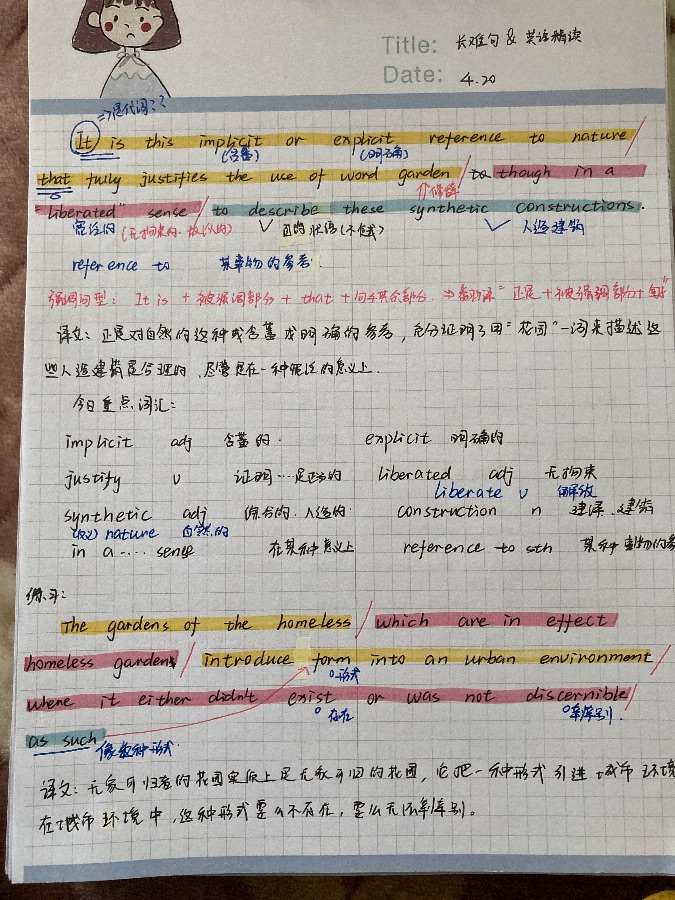 Title: 长难句 & 英语精读
Date: 4.20
=>是代词??
It is this implicit or explicit reference to nature
(含蓄) (明确)
that fully justifies the use of word garden / to though in a
修饰
liberated" sense / to describe these synthetic constructions.
(无拘束的、放纵的) 目的状语(不定式) 人造建筑
reference to 某事物的参考.
强调句型: It is + 被强调部分 + that + 句子其余部分. => 翻译 "正是 + 被强调部分 +
译文: 正是对自然的这种或含蓄或明确的参考, 充分证明了用"花园"一词来描述这
些人造建筑是合理的, 尽管是在一种宽泛的意义上.
今日重点词汇:
implicit adj 含蓄的. explicit 明确的
justify v 证明…是正当的 liberated adj 无拘束
liberate v 解放
synthetic adj 综合的. 人造的. construction n 建译. 建筑
(反义) nature 自然的
in a .... sense 在某种意义上 reference to sth 某种事物的参
练习:
The gardens of the homeless / which are in effect
homeless gardens / introduce form into an urban environment /
形式
where it either didn't exist or was not discernible /
存在 辨别.
as such
像这种形式.
译文: 无家可归者的花园实际上是无家可归的花园, 它把一种形式引进城市环境
在城市环境中, 这种形式要么不存在, 要么无法辨别。